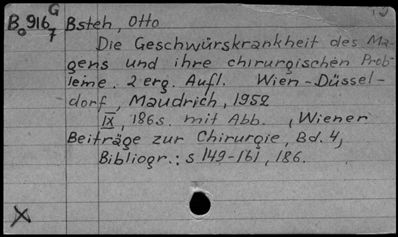 G
B₀916₇ Bsteh, Otto
Die Geschwürskrankheit des Ma-
gens und ihre chirurgischen Prob-
leme. 2 erg. Aufl. Wien-Düssel-
dorf, Maudrich, 1952
IX, 186s. mit Abb. , Wiener
Beiträge zur Chirurgie, Bd. 4,
Bibliogr.: S 149-161, 186.
X